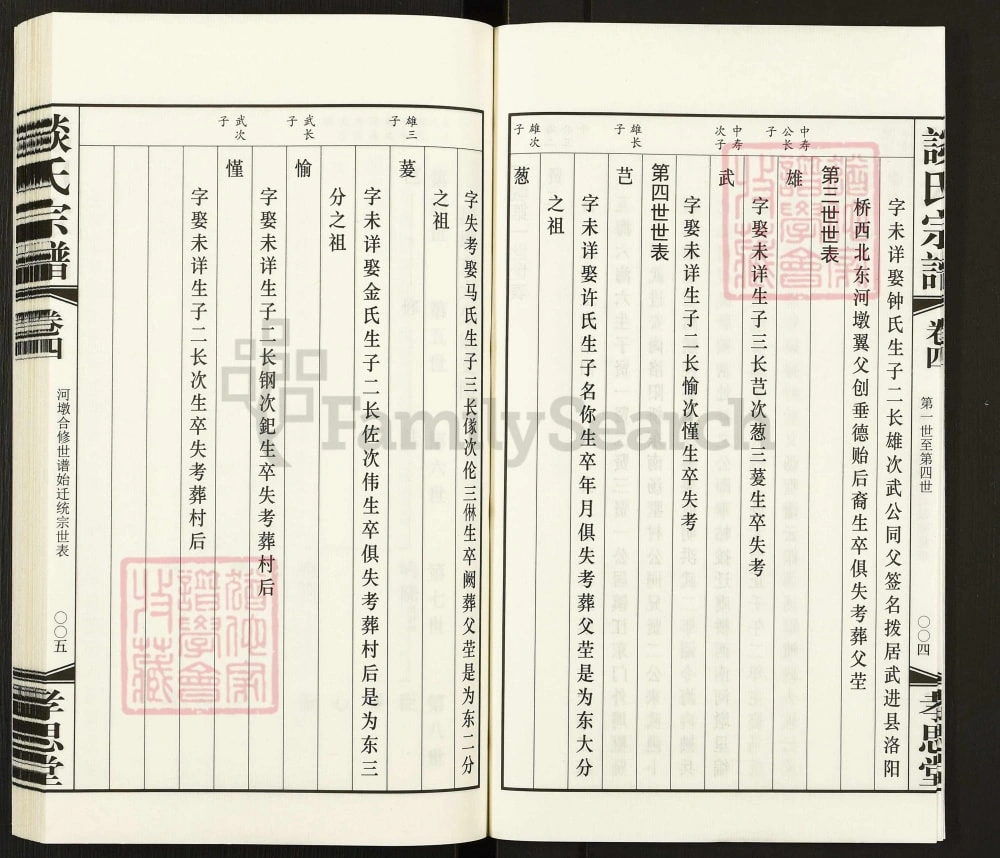 談氏宗譜
卷四
第一世至第四世
〇〇四
孝思堂
字未详娶钟氏生子二长雄次武公同父签名拨居武进县洛阳
桥西北东河墩翼父创垂德贻后裔生卒俱失考葬父茔
第三世世表
中寿公长子
雄
字娶未详生子三长芑次葱三蒆生卒失考
中寿次子
武
字娶未详生子二长愉次懂生卒失考
第四世世表
雄长子
芑
字未详娶许氏生子名你生卒年月俱失考葬父茔是为东大分
之祖
雄次子
葱
字失考娶马氏生子三长傢次伦三㑣生卒阙葬父茔是为东二分
之祖
雄三子
蒆
字未详娶金氏生子二长佐次伟生卒俱失考葬村后是为东三
分之祖
武长子
愉
字娶未详生子二长钢次鈀生卒失考葬村后
武次子
懂
字娶未详生子二长次生卒失考葬村后
談氏宗譜
卷四
河墩合修世谱始迁统宗世表
〇〇五
孝思堂
FamilySearch